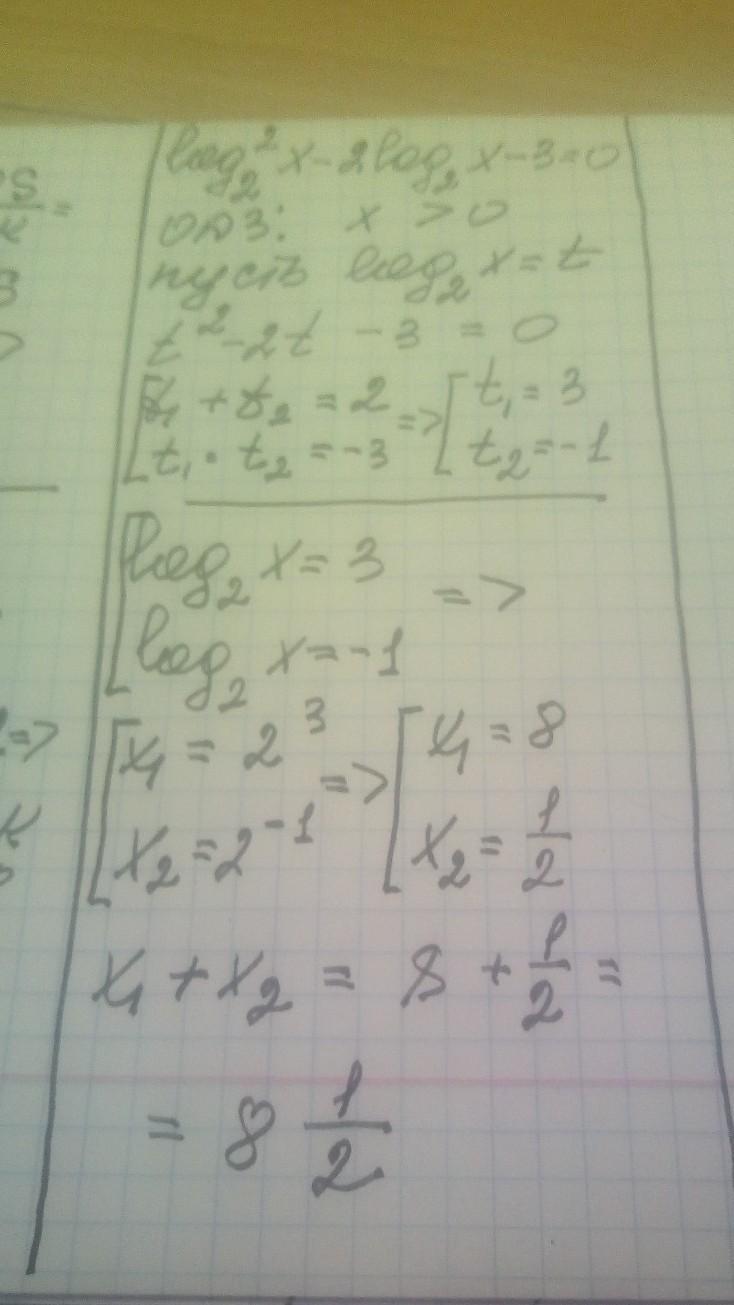 log₂² x - 2 log₂ x - 3 = 0
ОДЗ: x > 0
пусть log₂ x = t
t² - 2t - 3 = 0
[ t₁ + t₂ = 2
t₁ · t₂ = -3 => [ t₁ = 3
t₂ = -1
[ log₂ x = 3
log₂ x = -1 =>
[ x₁ = 2³
x₂ = 2⁻¹ => [ x₁ = 8
x₂ = 1/2
x₁ + x₂ = 8 + 1/2 =
= 8 1/2